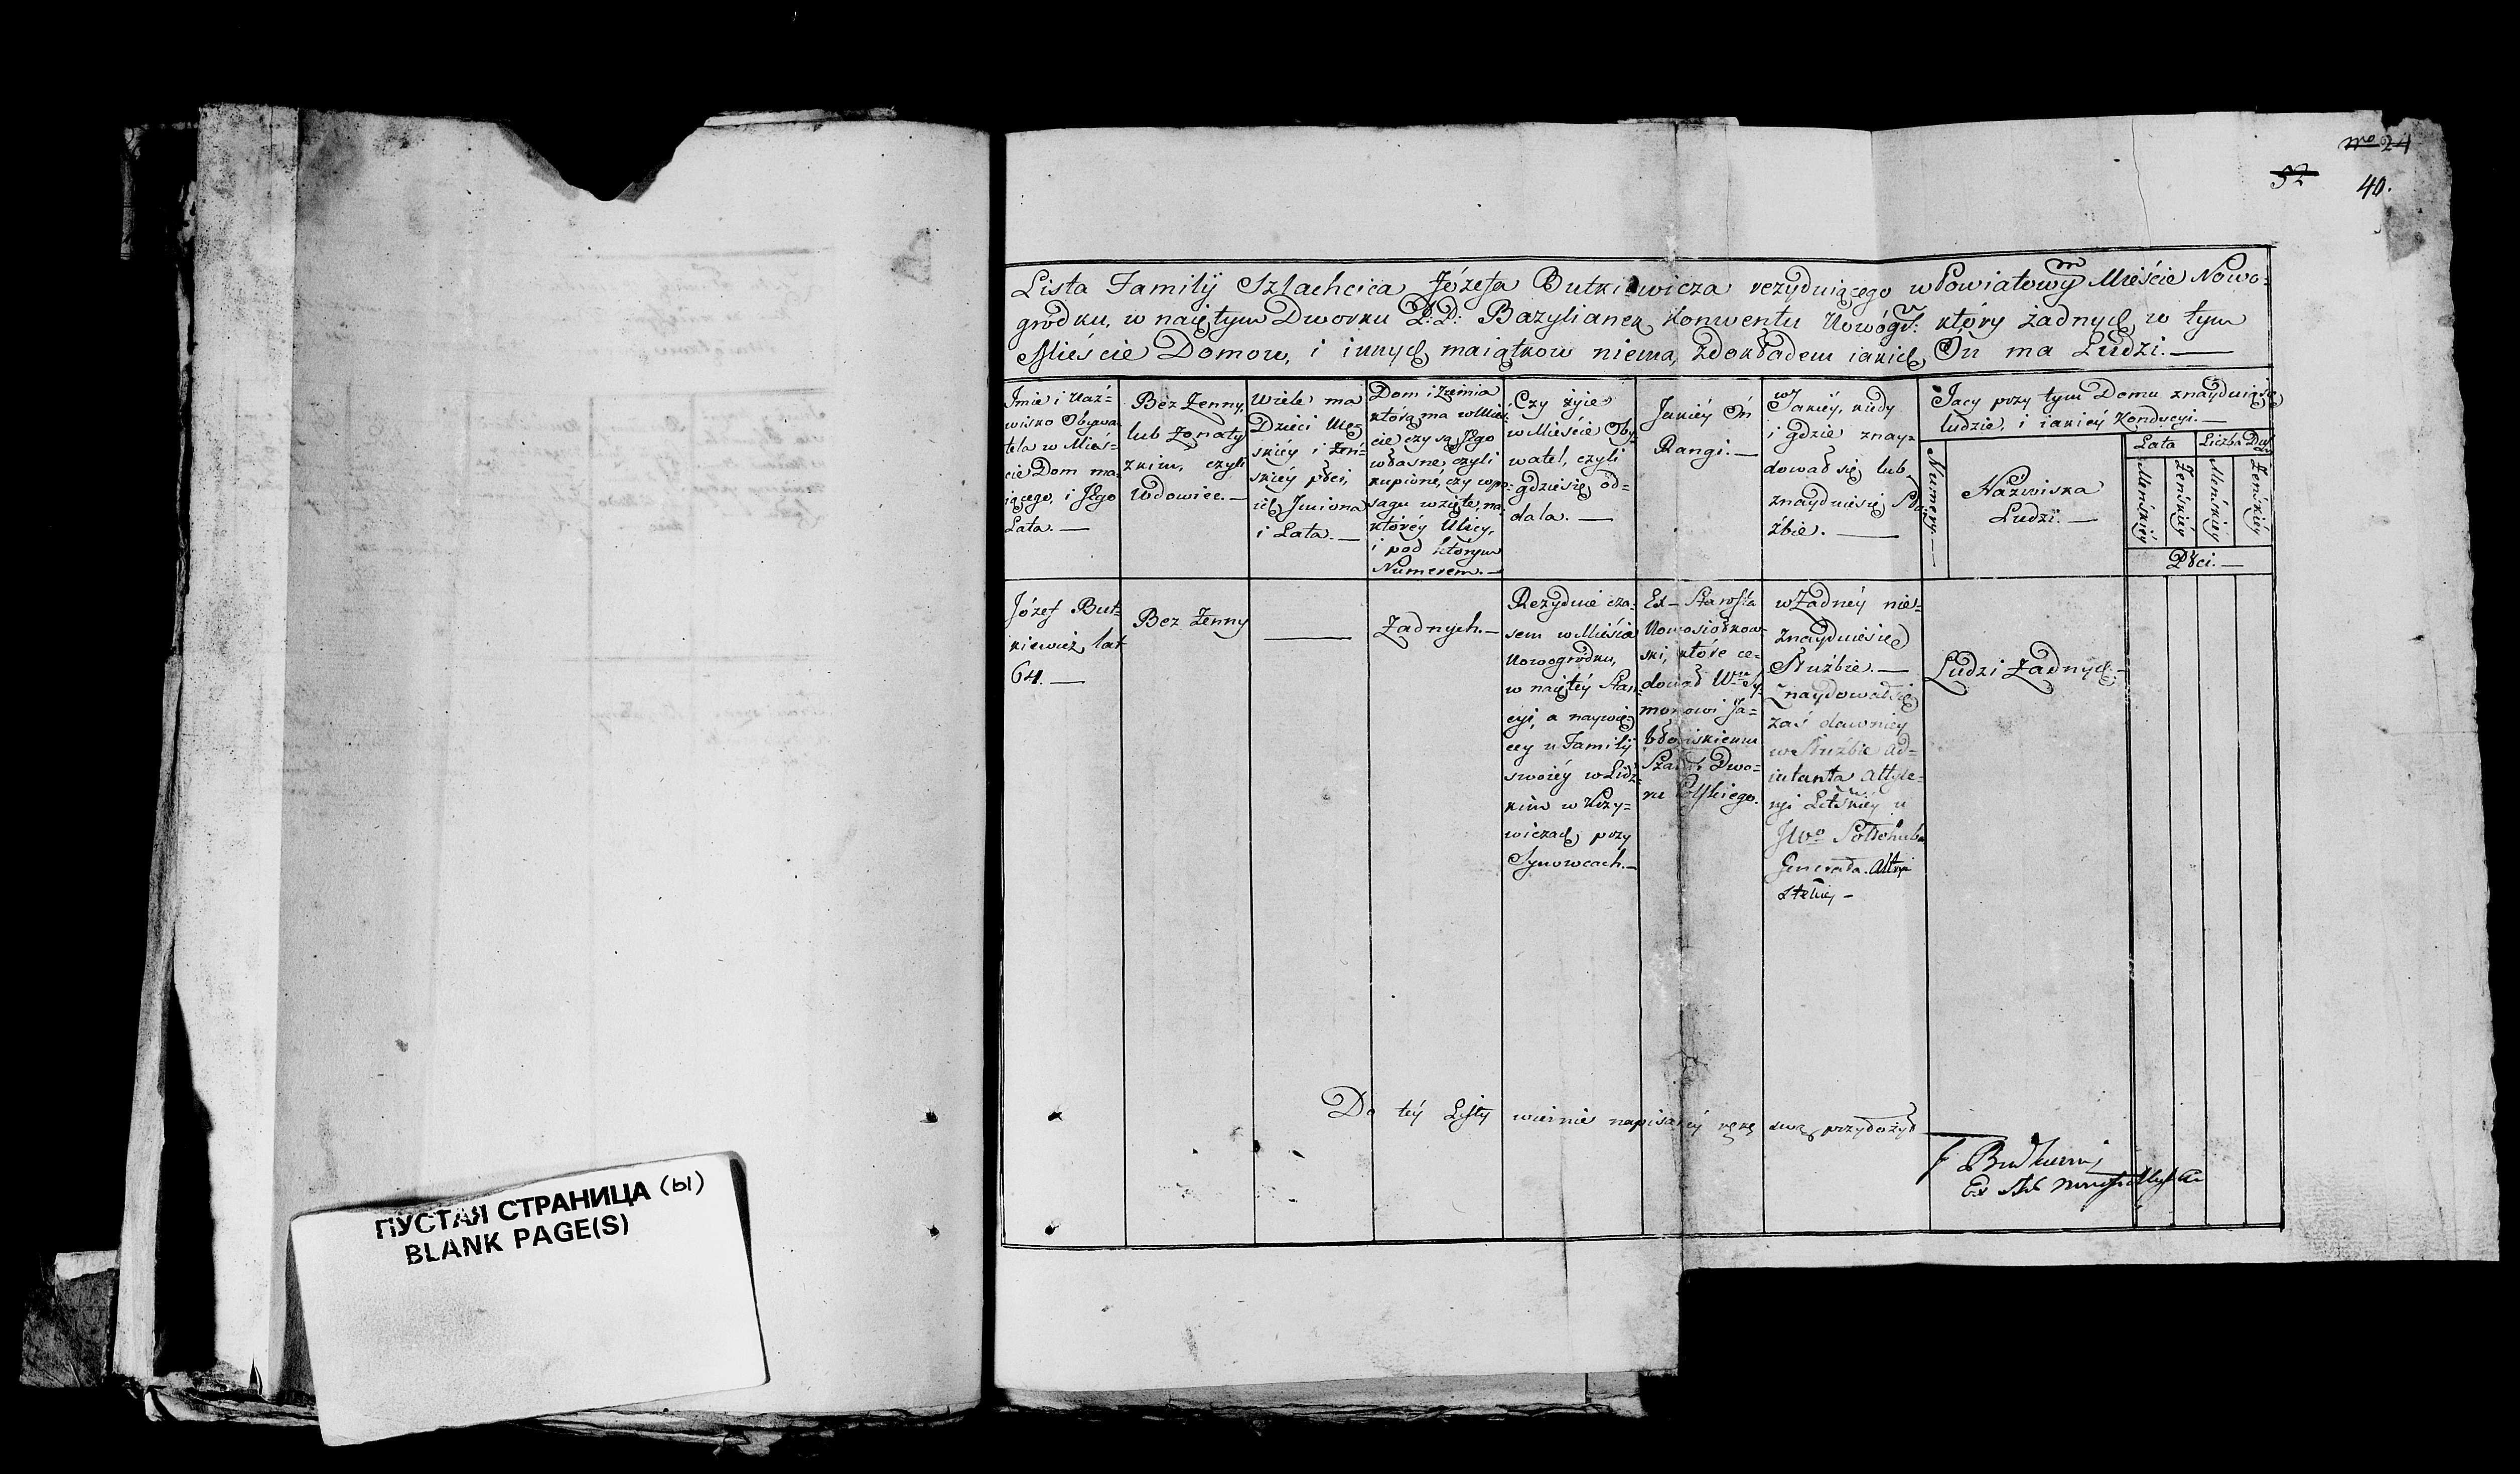 no 24
52 40.
Lista Familij Szlachcica Józefa Butkiewicza rezyduiącego w Powiatowym Mieście Nowo-
gródku, w naiętym Dworku P:P: Bazylianek Konwentu Nowogr: który żadnych w tym
Mieście Domow, i innych maiątkow niema, zdokładem iakich On ma Ludzi.—
Jmie i Naz-
wisko Obywa-
tela w Mieś-
cie Dom ma-
iącego, i Jego
Lata.—
Bez Żenny,
lub Żonaty
zkim, czyli
Wdowiec.—
Wiele ma
Dzieci Męz-
skiey i Żeń-
skiey płci,
ich Jmiona
i Lata.—
Dom i Ziemia
którą ma w Mieś-
cie czy są Jego
własne, czyli
kupione, czy w po-
sagu wzięte, na
którey Ulicy,
i pod którym
Numerem.—
Czy żyie
w Mieście Oby-
watel, czyli
gdzie się od-
dala.—
Jakiey On
Rangi.—
w Jakiey, kiedy
i gdzie znay-
dował się lub
znayduie się Słu-
żbie.—
Jacy przy tym Domu znayduią się
ludzie, i iakiey Kondycyi.—
Numery.—
Nazwiska
Ludzi.—
Lata
Liczba Dusz
Męńskiéy
Żeńskiéy
Męńskiéy
Żeńskiéy
Płci.—
Józef But-
kiewicz, lat
64.—
Bez Żenny
Żadnych.—
Rezyduie cza-
sem w Mieście
Nowogródku,
w naiętey Stan-
cyi, a naywię-
cey u Familij
swoiéy w Lidz-
kim w Krzy-
wiczach przy
Synowcach.—
Ex-Starosta
Nowosiołkow-
ski, które ce-
dował Wmu Sy-
monowi Ja-
błońskiemu
Szamb: Dwo-
ru Polskiego.
w Żadney nie-
znayduie się
Służbie.—
Znaydował się
zaś dawniey
w Służbie ad-
iutanta Attyle-
ryi Litskiey u
JWo Sołłohuba
Generała Attyl
Ludzi Żadnych.—
Do téy Listy wiernie napisaney rękę swą przyłożył
J Butkiewicz